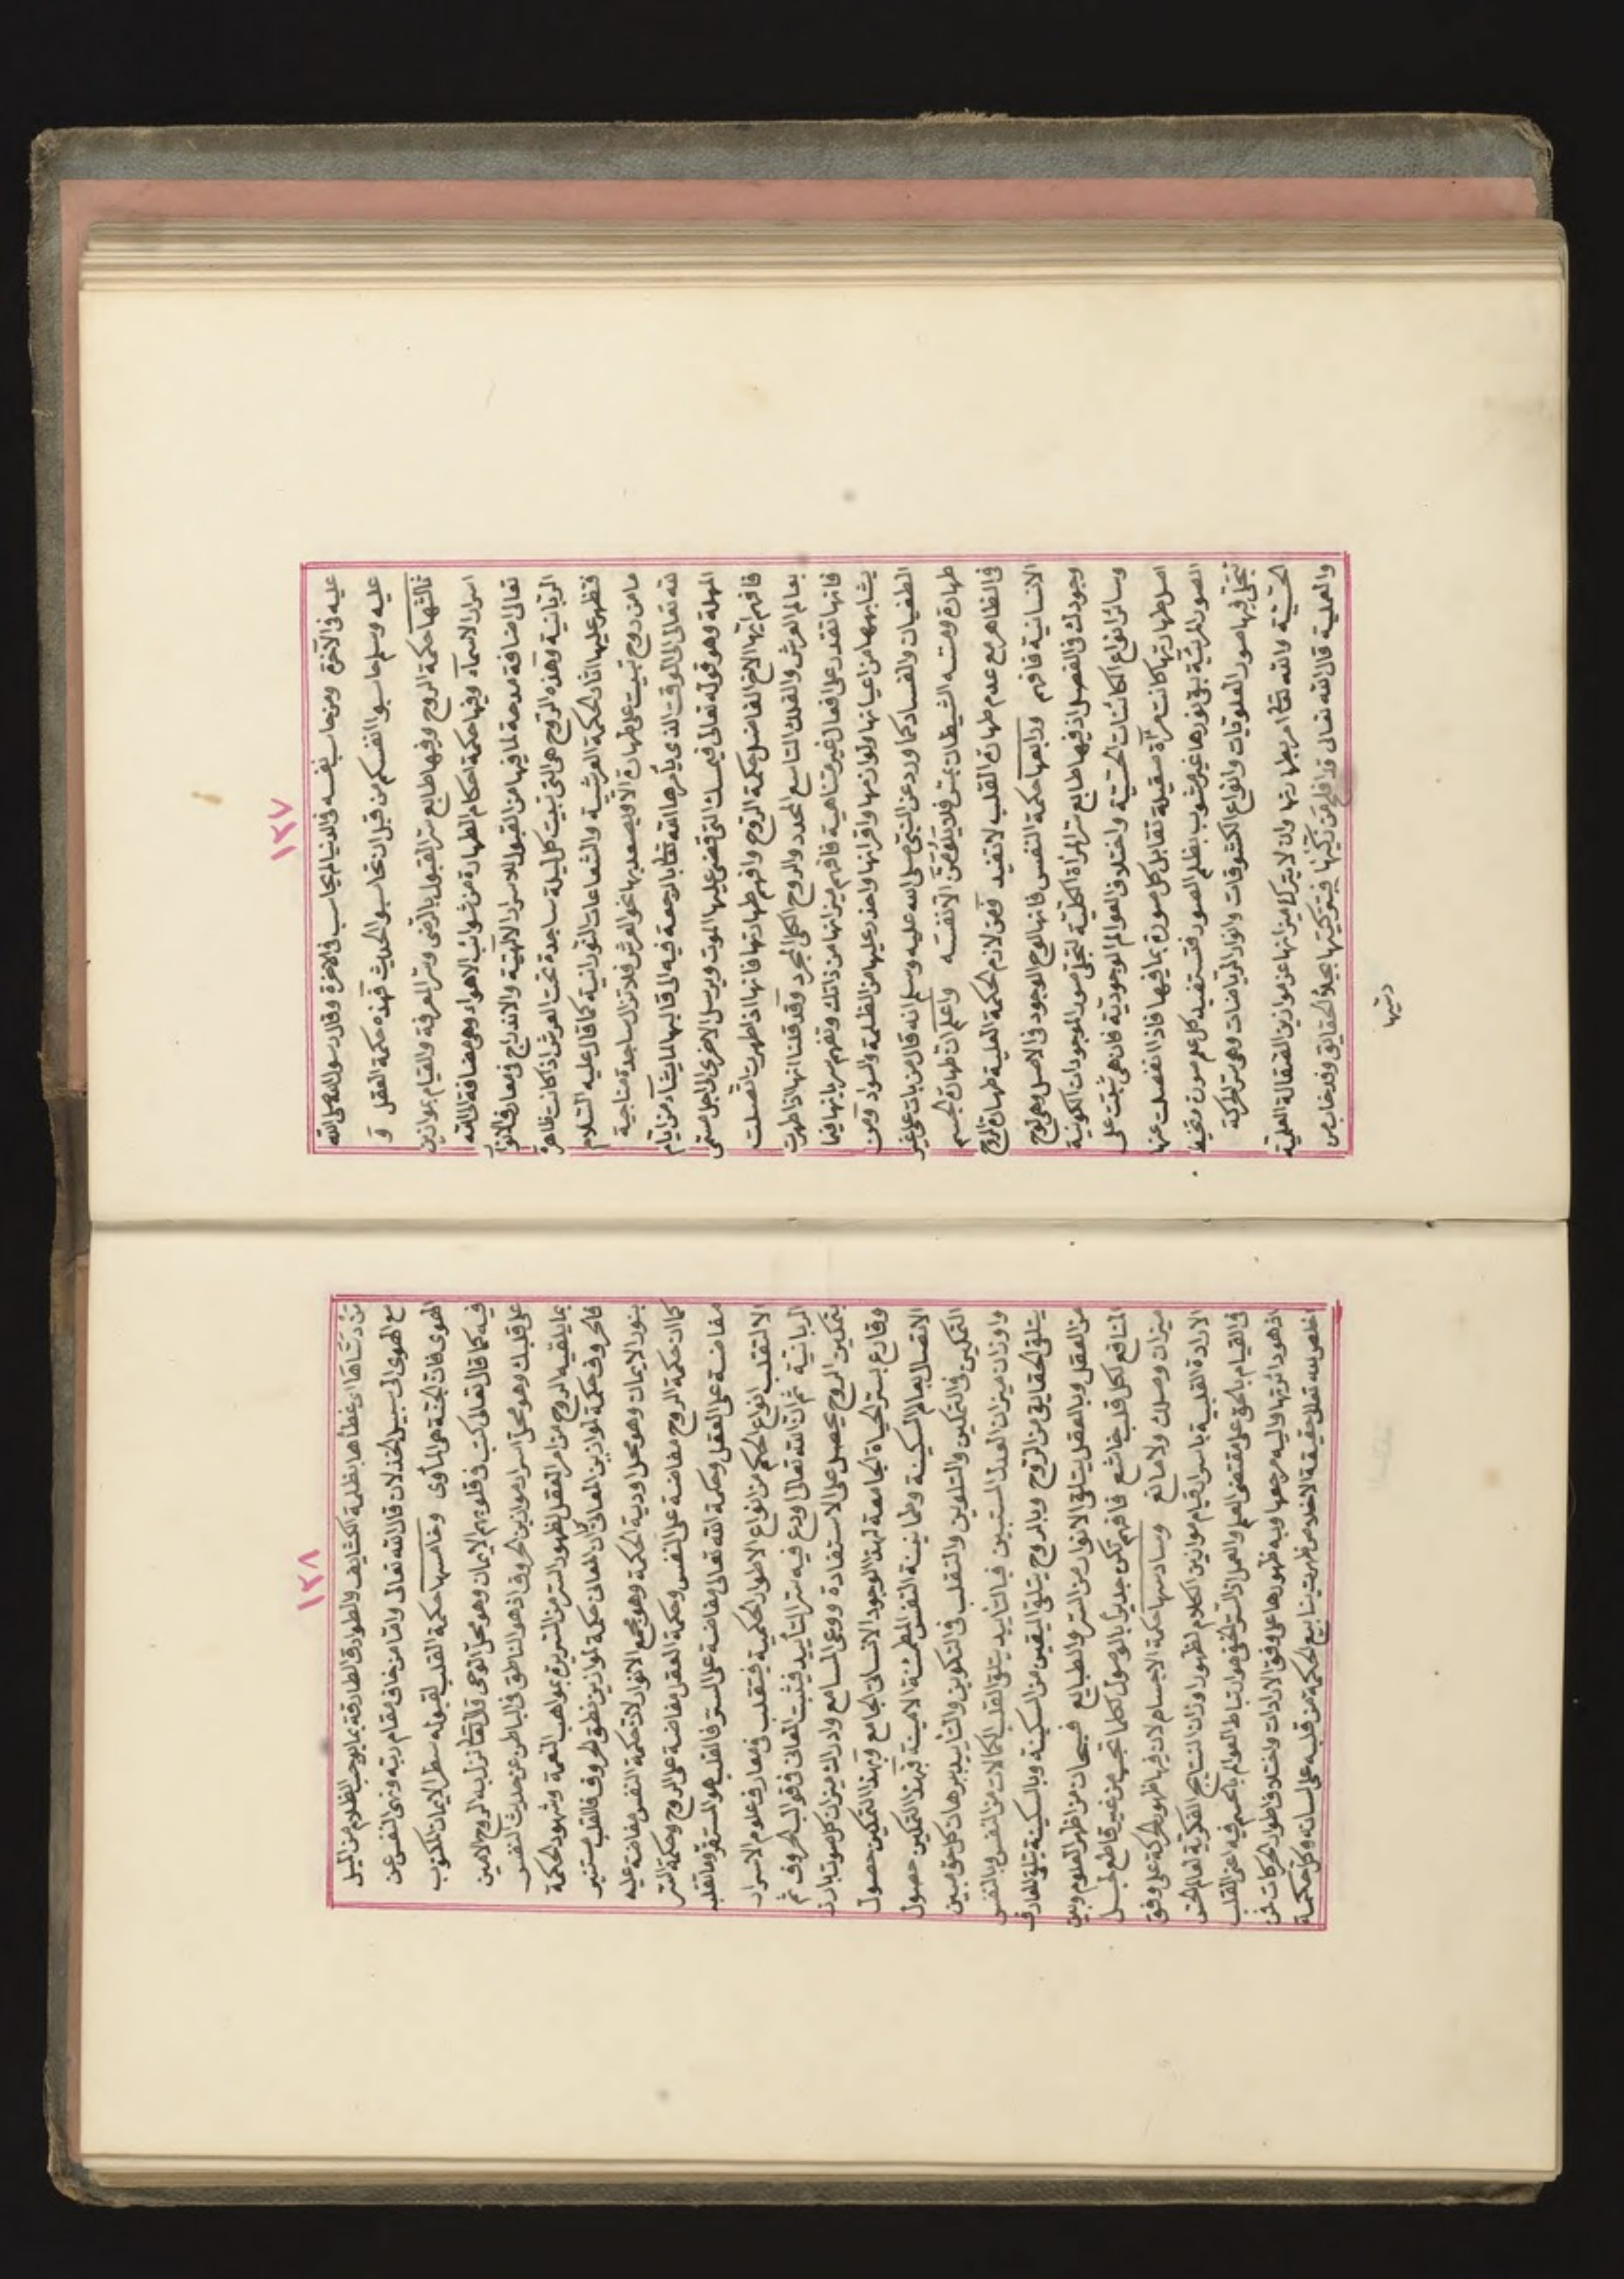 ١٢٧
عليه فى الآخرة ومن حاسب نفسه فى الدنيا لم يحاسب فى الآخرة وقال رسول الله صلى الله
عليه وسلم حاسبوا انفسكم من قبل ان تحاسبوا الحديث فهذه حكمة العقل و
ثالثها حكمة الروح وفيها طابع سر القبول بالرضى وسر المعرفة والقيام بموازين
اسرار الاسمآء وفيها حكمة احكام الطهارة من شوائب الاهواء وهى مضافة الى الله
تعالى اضافة مدحة لما فيها من القبول لاسرار الالهية والاندراج فى معارف الانوار
الربانية وهذه الروح هى التى تبيت كل ليلة ساجدة تحت العرش اذا كانت طاهرة
فتظهر عليها اثار الحكمة العرشية والشعاعات النورانية كما قال عليه السلام
ما من روح تبيت على طهارة الا ويصعد بها نحو العرش فلا تزال ساجدة مناجية
لله تعالى الى الوقت الذى يأمرها الله تعالى بالرجعة فيه الى قالبها لما يشآء من ايام
المهلة وهو قوله تعالى فيمسك التى قضى عليها الموت ويرسل الاخرى الى اجل مسمى
فافهم ايها الاخ الفاضل حكمة الروح وافهم طهارتها فانها اذا طهرت اتصلت
بعالم العرش والفلك التاسع المحدد والروح الكلى المجرد وقد قلنا انها اذا طهرت
فانها تقدر على افعال غير متناهية فافهم ميزانها من ذاتك وتفهم سريانها فيما
يشابهها من اعيانها ولوازمها واقرانها واحذر عليها من الظلمة والسواد ومن
الطغيان والفساد كما ورد عن النبى صلى الله عليه وسلم انه قال من بات على غير
طهارة ومسه الشيطان بمس فلا يلومن الا نفسه واعلم ان طهارة الجسم
فى الظاهر مع عدم طهارة القلب لا تفيد فمن لازم الحكمة العلية طهارة الروح
الانسانية فافهم ورابعها حكمة النفس فانها لوح الوجود فى الاصل وهى لوح
وجودك فى الفصل اذ فيها طابع سر المرآة الكلية لتجلى صور الموجودات الكونية
وسائر انواع الكائنات الحسية واختلاف العوالم الوجودية فان هى ثبتت على
اصل طهارتها كانت مرآة صقيلة تقابل كل صورة بما فيها فاذا انفصلت عنها
الصور المرئية بقى نورها غير مشوب بظلم الصور فتستفيد كل علم صورة
تتجلى فيها صور العلويات وانواع الكشوفات وانوار الرياضات وهى سر الحركة
الحسية والله تعالى امر بطهارتها وان لا يترك ميزانها عن موازين الصقالة العلمية
والعملية قال الله تعالى قد افلح من زكيها فتزكيتها بجلاء الحقايق وقد خاب من
دسيها
١٢٨
من دساها اى غطاها بظلمة الكثايف والطوارق الطارقة بما يوجب الظلام من الميل
مع الهوى الى سبيل الخذلان قال الله تعالى واما من خاف مقام ربه ونهى النفس عن
الهوى فان الجنة هى المأوى وخامسها حكمة القلب لقبوله سطر الايمان المكتوب
فيه كما قال تعالى كتب فى قلوبهم الايمان وهو محل الوحى قال تعالى نزل به الروح الامين
على قلبك وهو محل اسرار موازين الحروف اذ هو الناطق فى الباطن عن حديث النفس
بما يلقيه الروح من امر العقل لظهور السر من السريرة بمواهب النعمة وشهود الحكمة
فالحروف حكمة لموازين المعانى كما ان المعانى حكمة لموازين نطق الحروف فالقلب مستنير
بنور الايمان وهو محل اودية الحكمة وهو مجمع الانوار لان حكمة النفس مفاضة عليه
كما ان حكمة الروح مفاضة على النفس وحكمة العقل مفاضة على الروح وحكمة السر
مفاضة على العقل وحكمة الله تعالى مفاضة على السر فالقلب هو المستقر وما تقلبه
الا لتقلب انواع الحكم من انواع الاطوار الحكمية فيتقلب فى معارف علوم الاسرار
الربانية ثم ان الله تعالى اودع فيه سر التأييد فيثبت المعانى فى قوالب الحروف ثم
بتمكين الروح يحصل على الاستفادة ووعى المسامع وادراك ميزان كل صوت بارز
وقارع بسر الحياة الجامعة لهذا الوجود الانسانى الجامع وبهذا التمكين حصول
الاتصال بعالم السكينة وطمانينة النفس المطمئنة الامينة فهذا التمكين حصول
التمكين فى التمكين والتلوين والتقلب فى التكوين والتأييد ببرهان كل حق مبين
واوزان ميزان العدل المستبين فبالتأييد يتلقى القلب الكمالات من النفس وبالنفس
يتلقى الحقايق من الروح وبالروح يتلقى اليقين من السكينة وبالسكينة يتلقى المعارف
من العقل وبالعقل يتلقى الانوار من السر والطبايع فسبحان من اظهر العلوم وبين
المنافع لكل قلب خاشع فافهم تكن جديرا بالوصول لكلما تحب من غير قاطع لحبل
ميزان وصلك ولا مانع وسادسها حكمة الاجسام لان فيها ظهور الحركة على وفق
الارادة القلبية باسرار قيام موازين الكلام لظهور اوزان النتايج الفكرية لعالم الحس
فى القيام بالحق على مقتضى العلم والعمل اذ السر الخفى هو ارتباط العوالم بالجسم فيه اعنى القلب
اذ هو دائرتها واليه مرجعها وبه ظهورها على وفق الارادات واختلاف اطوار الحركات فمن
اخلص لله تعالى حقيقة الاخلاص ظهرت ينابيع الحكمة من قلبه على لسانه وكل حكمة